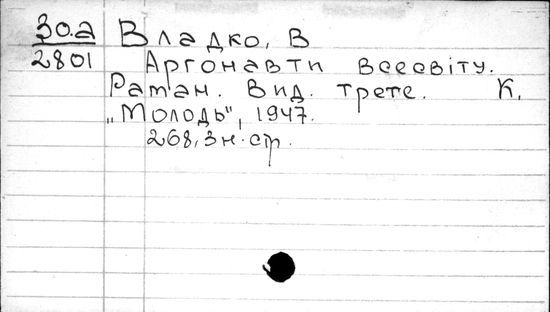 30.а Владко, В
2801 Аргонавти всесвіту.
Раман. Вид. трете. К.
„Молодь", 1947.
268, 3 н. ср.